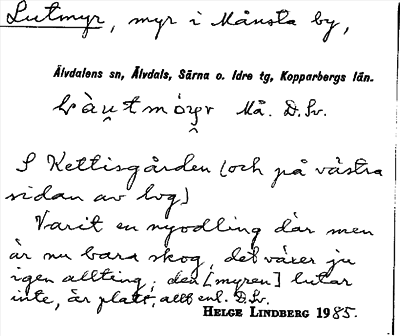 Lutmyr, myr i Månsta by,
Älvdalens sn, Älvdals, Särna o. Idre tg, Kopparbergs län.
Må. D. Sv.
S Kettisgården (och på västra
sidan av lvg)
Varit en nyodling där men
är nu bara skog, det växer ju
igen allting, den [myren] lutar
inte, är platt, allt enl. D. Sv.
HELGE LINDBERG 1985.